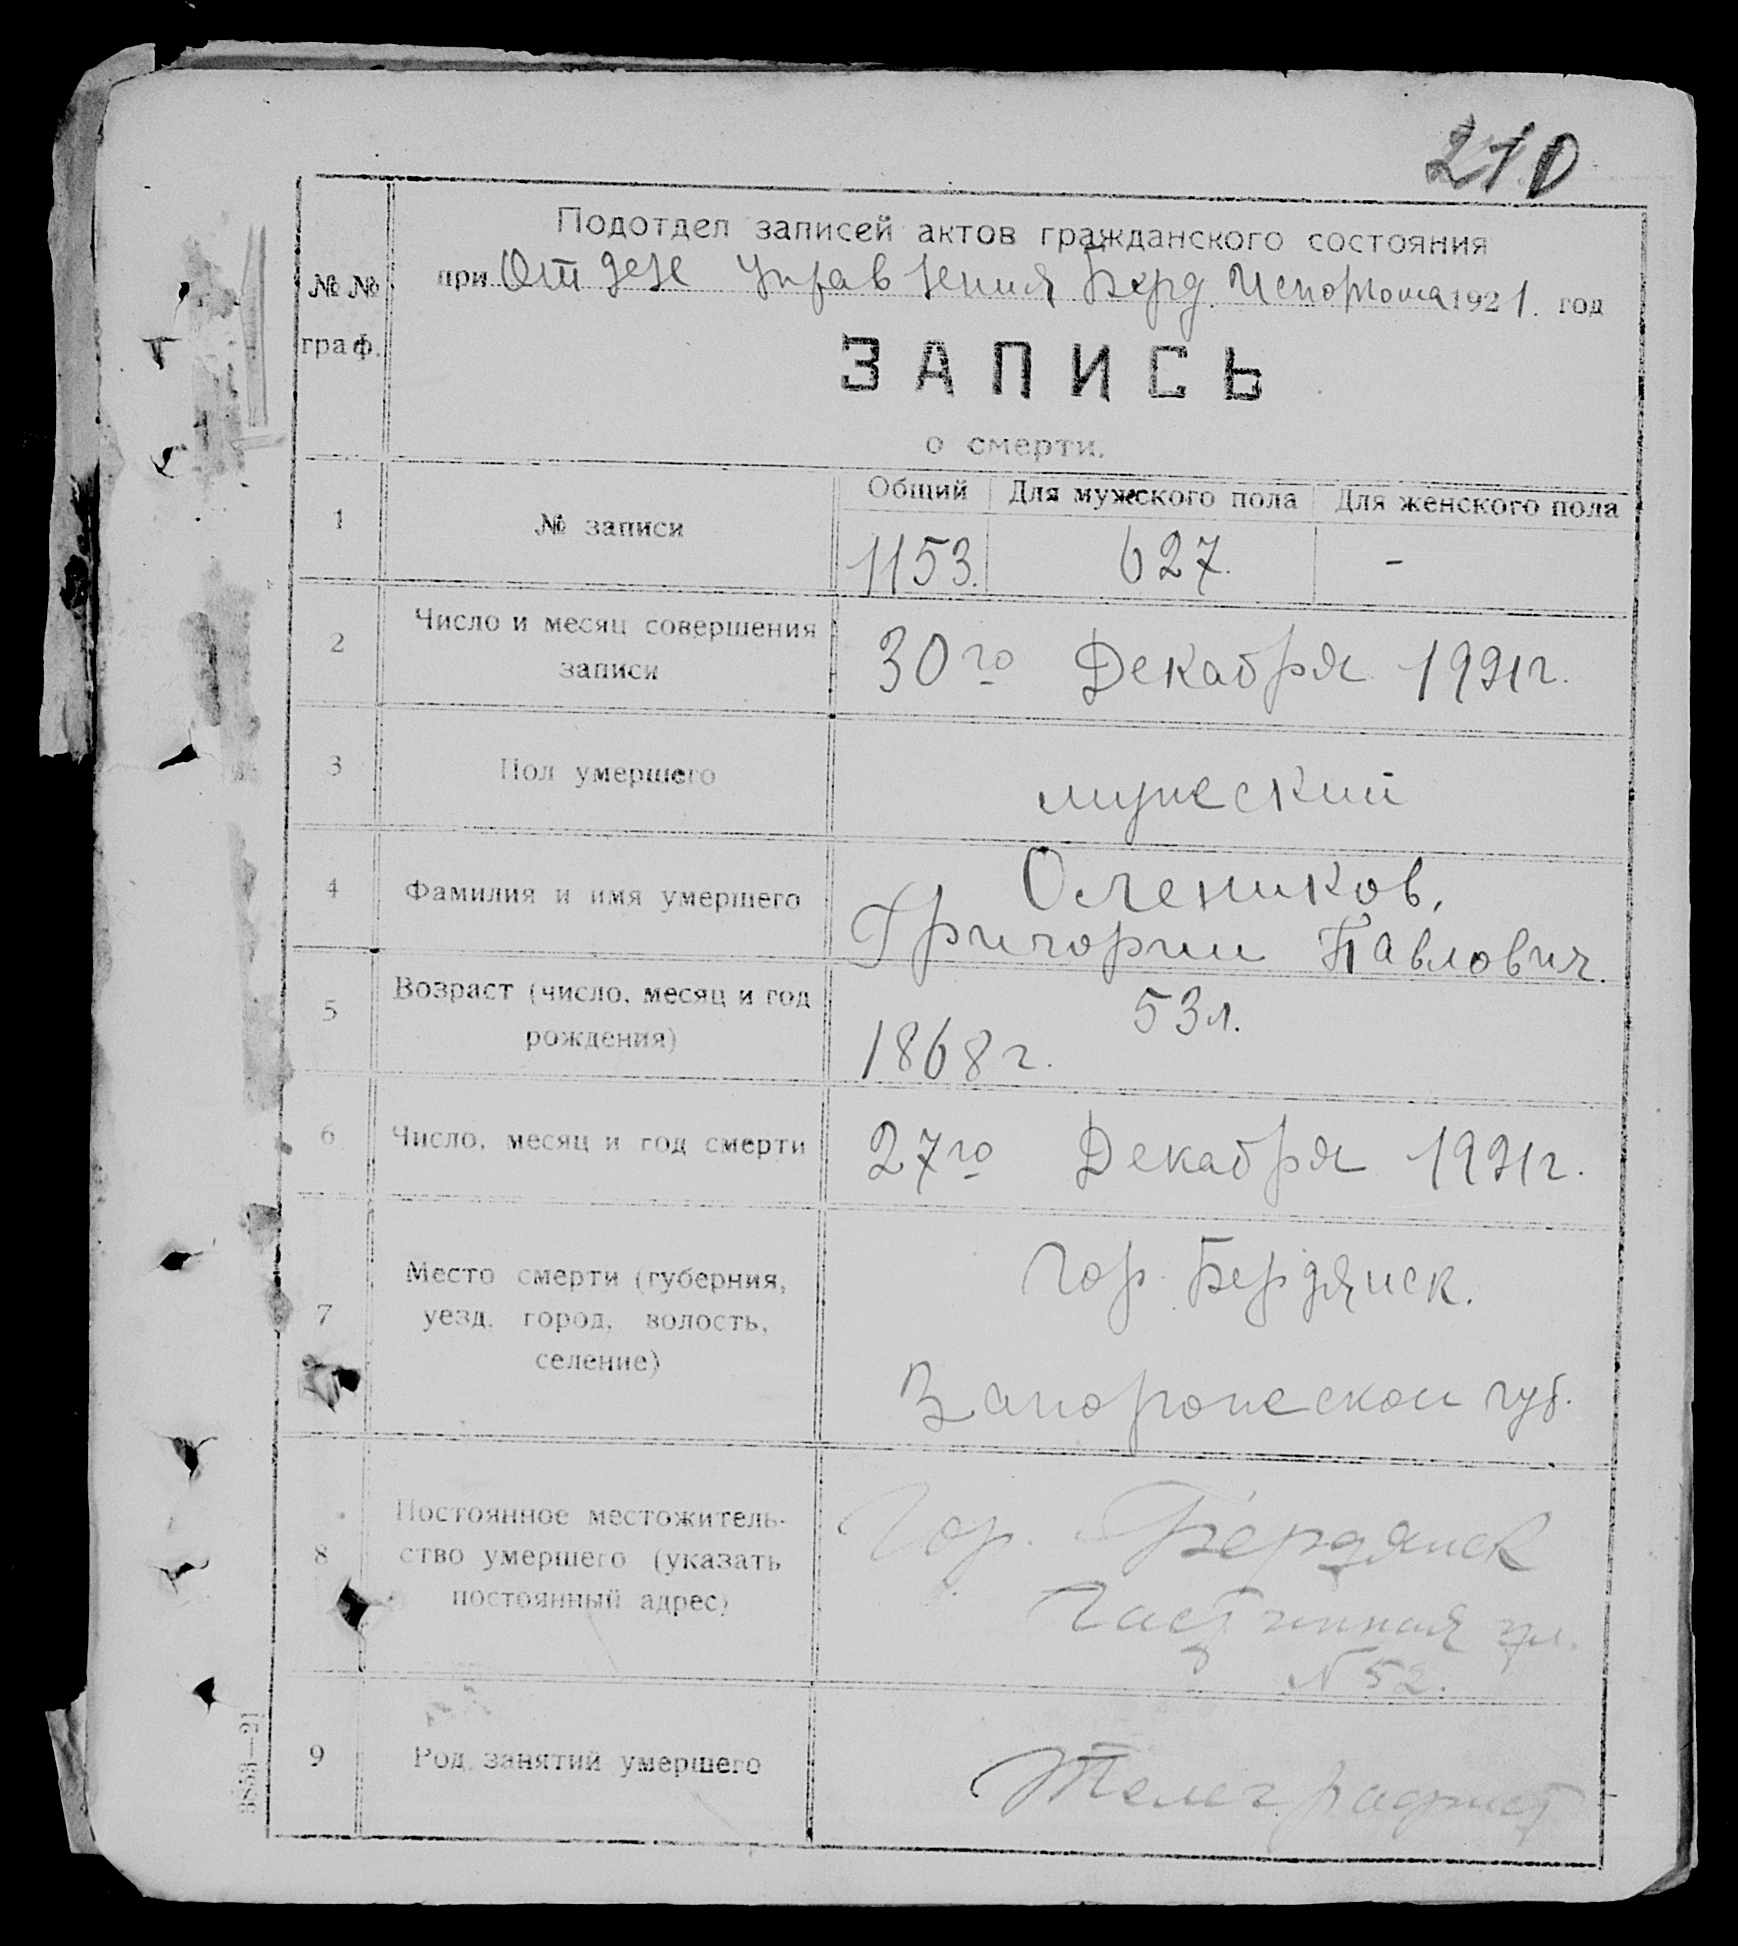 210
Подотдел записей актов гражданского состояния
при Отделе Управления Берд. Исполкома 1921. год
№№
граф.
ЗАПИСЬ
о смерти.
1
№ записи
Общий
Для мужского пола
Для женского пола
1153.
627.
-
2
Число и месяц совершения
записи
30го Декабря 1921г.
3
Пол умершего
мужеский
4
Фамилия и имя умершего
Олеников,
Григории Павлович.
5
Возраст (число, месяц и год
рождения)
53л.
1868г.
6
Число, месяц и год смерти
27го Декабря 1921г.
7
Место смерти (губерния,
уезд, город, волость,
селение)
гор. Бердянск.
Запорожеской губ.
8
Постоянное местожитель-
ство умершего (указать
постоянный адрес)
Гор. Бердянск
ул.
№ 52.
9
Род занятий умершего
Телеграфист
3853—21